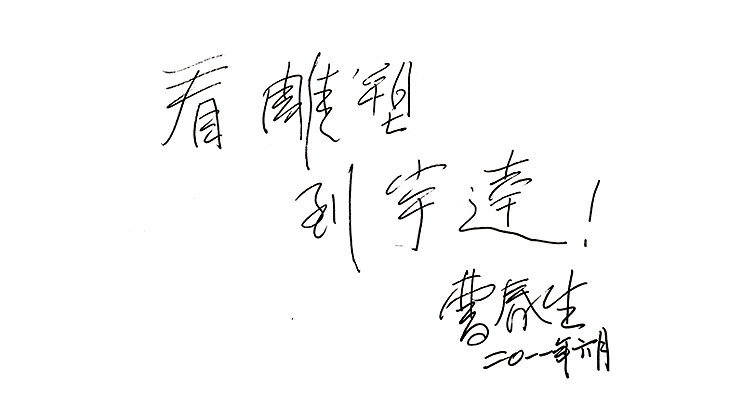 看雕塑
到宇达!
曹春生
二〇一一年六月